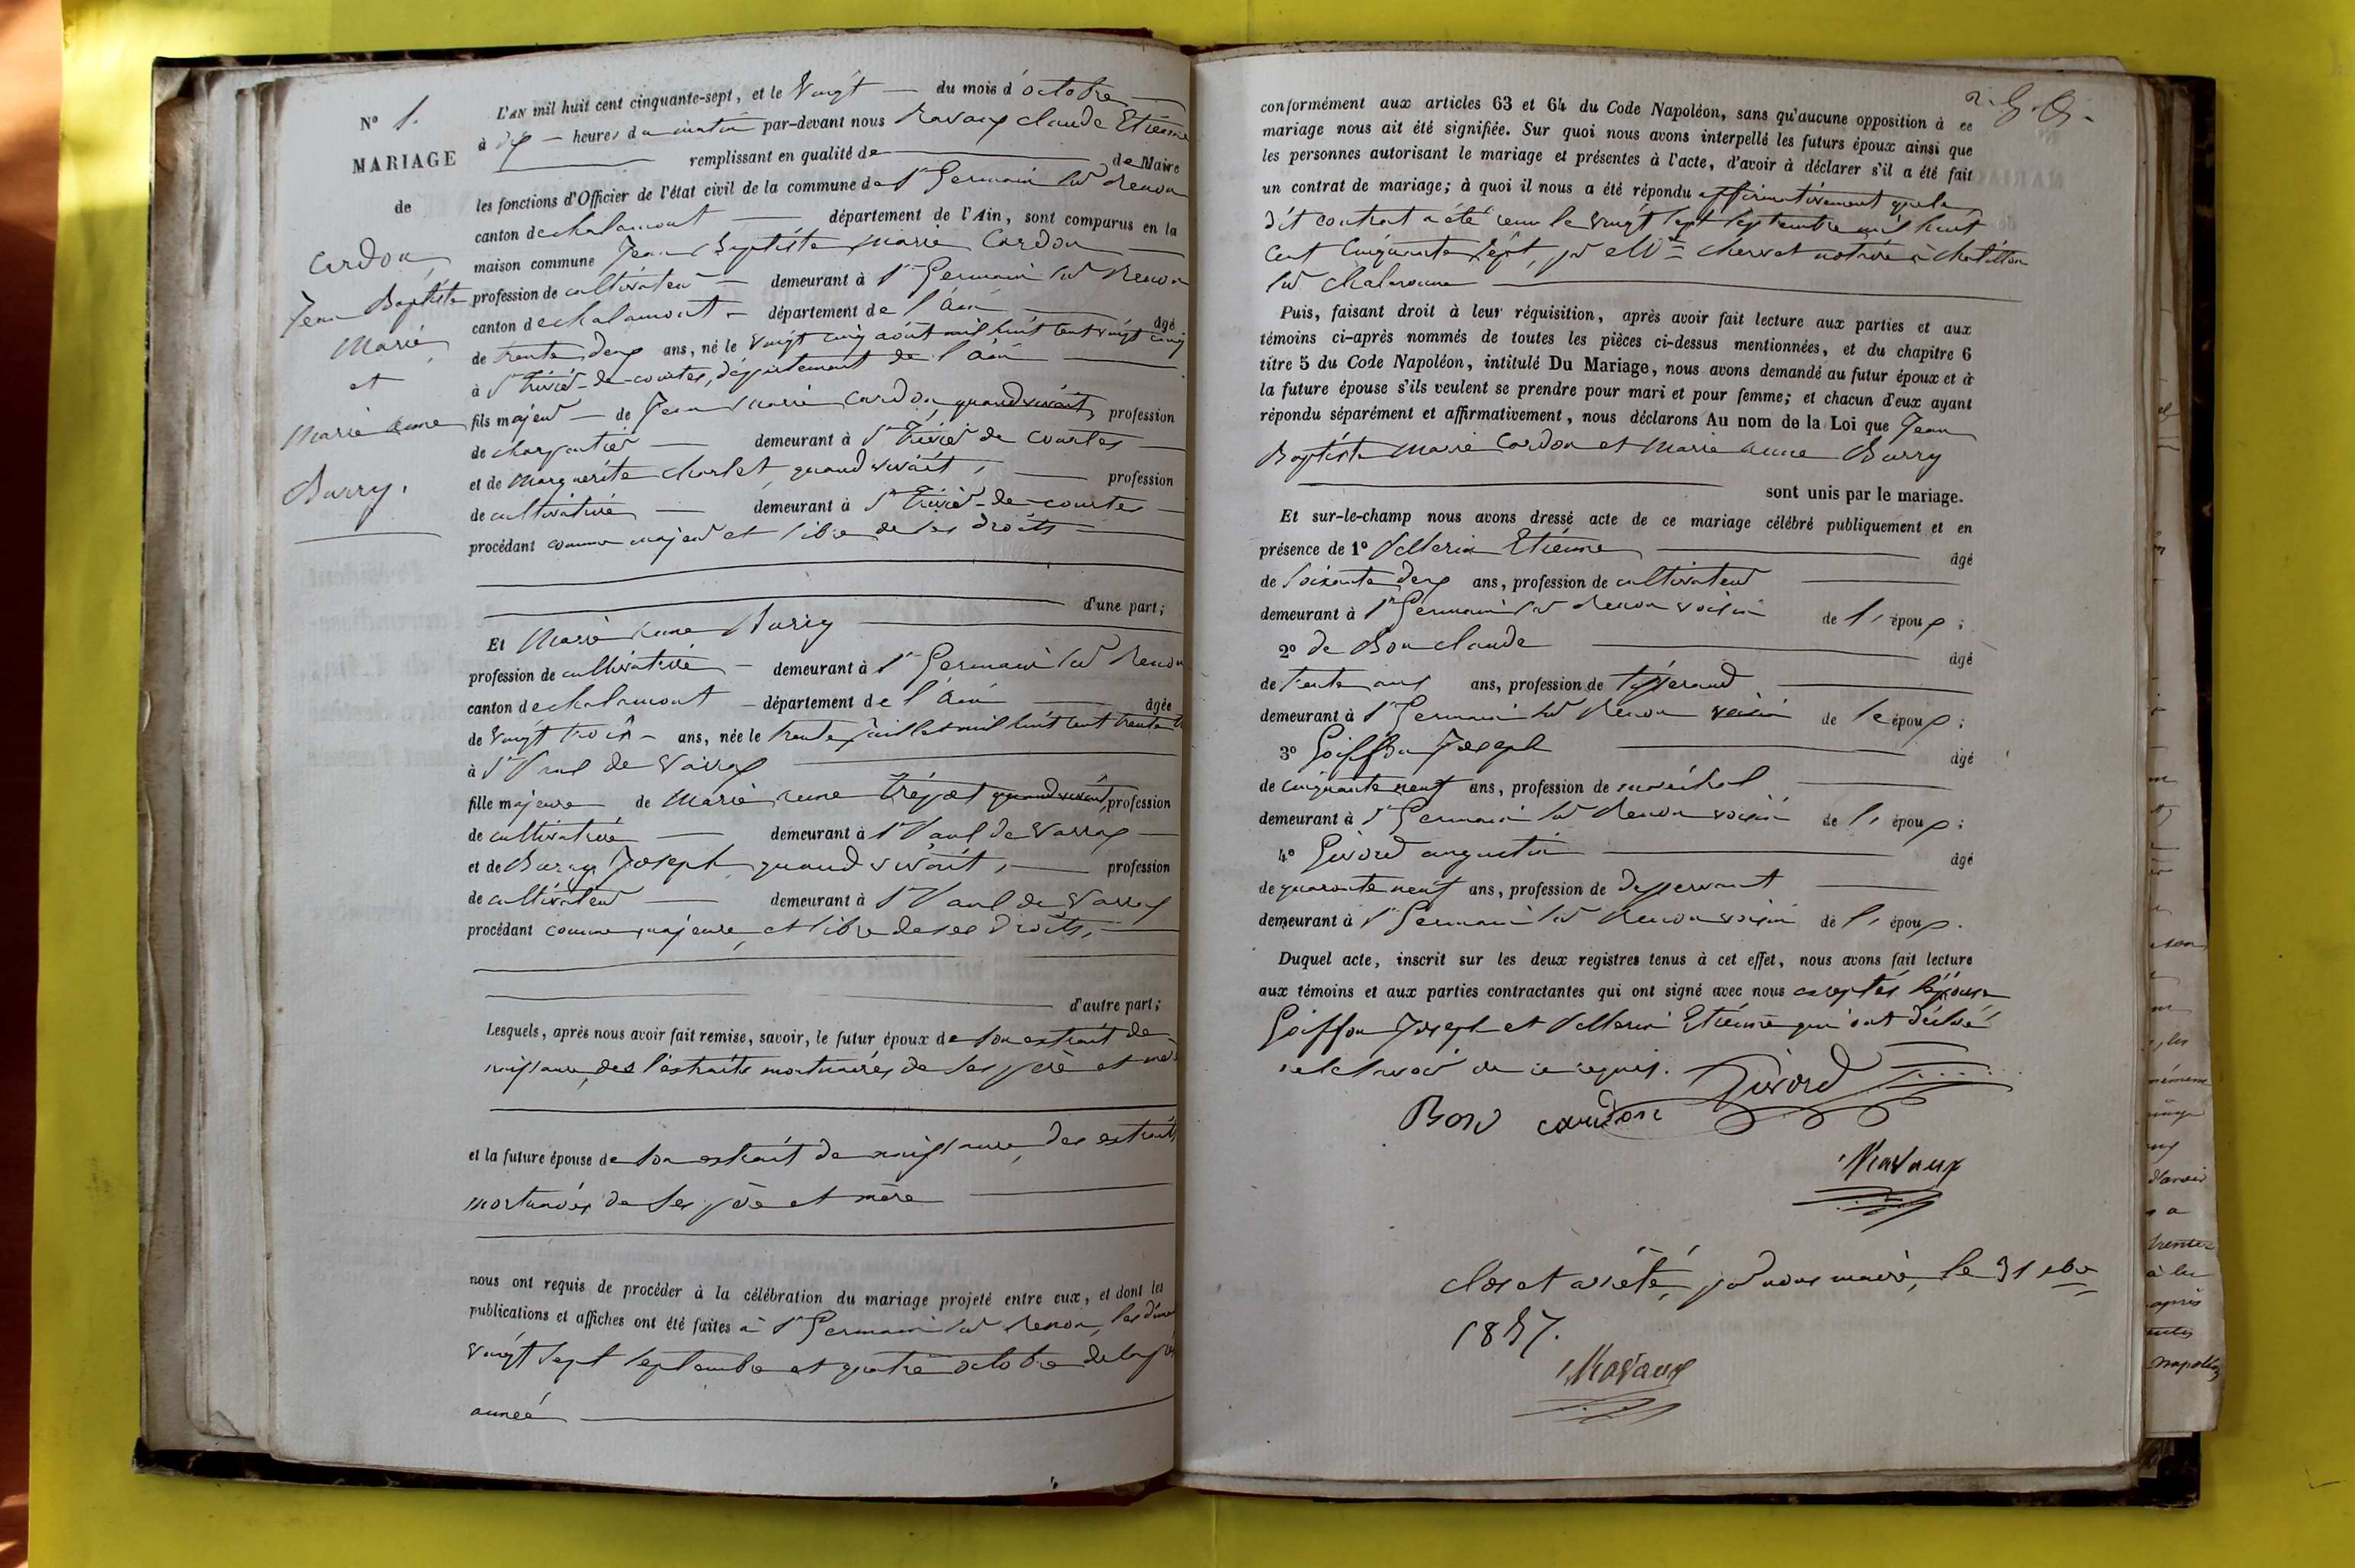 N° 1.
MARIAGE
de
Cardon
Jean Baptiste
Marie
et
Marie Anne
Burry.
L'AN mil huit cent cinquante-sept, et le vingt du mois d'octobre
à dix heures du matin par-devant nous Ravaux Claude Etienne
remplissant en qualité de de Maire
les fonctions d'Officier de l'état civil de la commune de St Germain sur Renon
canton de chalamont département de l'Ain, sont comparus en la
maison commune Jean Baptiste Marie Cardon
profession de cultivateur demeurant à St Germain sur Renon
canton de chalamont département de l'Ain âgé
de trente deux ans, né le vingt cinq août mil huit cent vingt cinq
à St Trivier-de-courtes, département de l'Ain
fils majeur de Jean Marie Cardon, quand vivait, profession
de charpentier demeurant à St Trivier de Courtes
et de Marguerite Charlet, quand vivait, profession
de cultivatrice demeurant à St Trivier-de-courtes
procédant comme majeur et libre de ses droits
d'une part;
Et Marie Anne Burry
profession de cultivatrice demeurant à St Germain sur Renon
canton de chalamont département de l'Ain âgée
de vingt trois ans, née le trente juillet mil huit cent trente
à St Paul de Varax
fille majeure de Marie Anne quand vivait, profession
de cultivatrice demeurant à St Paul de Varrax
et de Burry Joseph, quand vivait, profession
de cultivateur demeurant à St Paul de Varrax
procédant comme majeure et libre de ses droits,
d'autre part;
Lesquels, après nous avoir fait remise, savoir, le futur époux de son extrait de
naissance, des extraits mortuaires de ses père et mère
et la future épouse de son extrait de naissance, des extraits
mortuaires de ses père et mère
nous ont requis de procéder à la célébration du mariage projeté entre eux, et dont les
publications et affiches ont été faites à St Germain sur Renon, les
vingt sept septembre et quatre octobre de la
année
2.
conformément aux articles 63 et 64 du Code Napoléon, sans qu'aucune opposition à ce
mariage nous ait été signifiée. Sur quoi nous avons interpellé les futurs époux ainsi que
les personnes autorisant le mariage et présentes à l'acte, d'avoir à déclarer s'il a été fait
un contrat de mariage; à quoi il nous a été répondu affirmativement que le
dit contrat a été reçu le vingt sept septembre mil huit
cent cinquante sept, par Me notaire à Chatillon
sur Chalaronne
Puis, faisant droit à leur réquisition, après avoir fait lecture aux parties et aux
témoins ci-après nommés de toutes les pièces ci-dessus mentionnées, et du chapitre 6
titre 5 du Code Napoléon, intitulé Du Mariage, nous avons demandé au futur époux et à
la future épouse s'ils veulent se prendre pour mari et pour femme; et chacun d'eux ayant
répondu séparément et affirmativement, nous déclarons Au nom de la Loi que Jean
Baptiste Marie Cardon et Marie Anne Burry
sont unis par le mariage.
Et sur-le-champ nous avons dressé acte de ce mariage célébré publiquement et en
présence de 1° Etienne âgé
de soixante deux ans, profession de cultivateur
demeurant à St Germain sur Renon voisin de l'époux;
2° de Bon claude âgé
de trente ans, profession de tisserand
demeurant à St Germain sur Renon voisin de l'époux;
3° Goiffon Joseph âgé
de cinquante neuf ans, profession de maréchal
demeurant à St Germain sur Renon voisin de l'époux;
4° Givord augustin âgé
de quarante neuf ans, profession de desservant
demeurant à St Germain sur Renon voisin de l'époux.
Duquel acte, inscrit sur les deux registres tenus à cet effet, nous avons fait lecture
aux témoins et aux parties contractantes qui ont signé avec nous exceptés l'épouse
Goiffon Joseph et Etienne qui ont déclaré
ne le savoir de ce requis. Givord
Bon cardon
Ravaux
Clos et arrêté, par nous maire, le 31 xbre
1857.
Ravaux